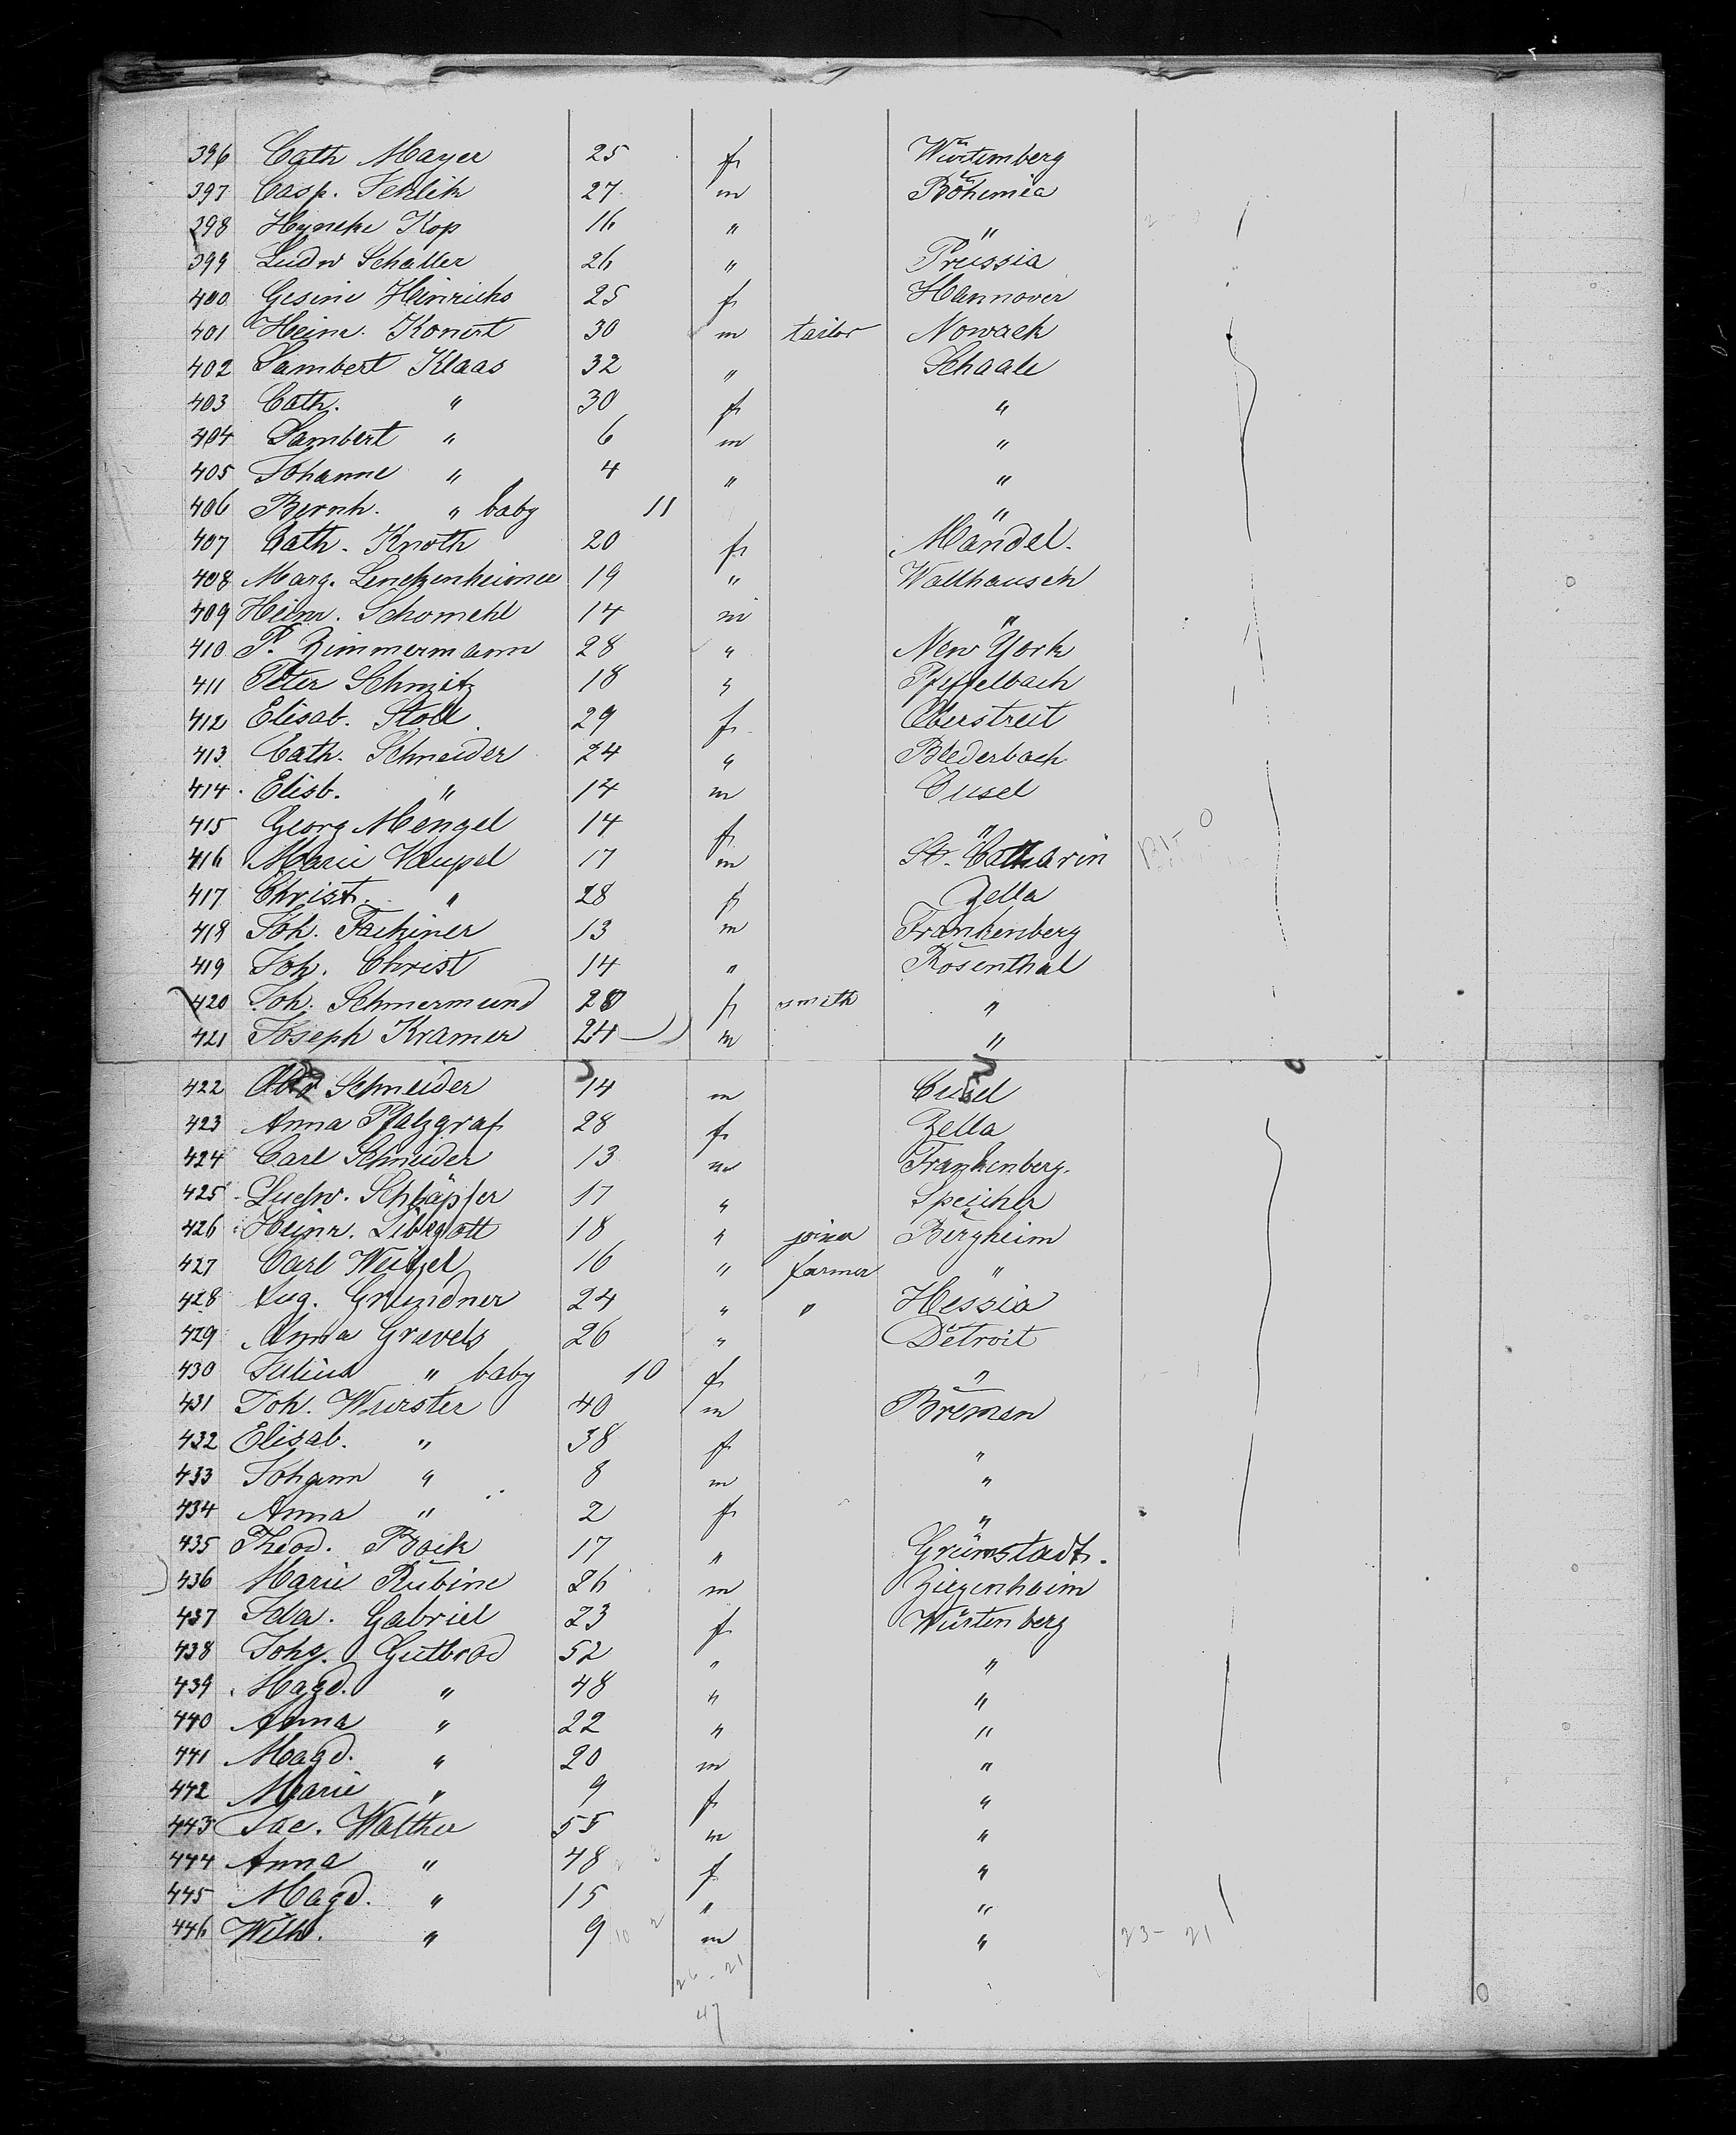 396 Cath Mayer 25 f Würtemberg
397 Casp. Jehlik 27 m Böhemia
398 Hyneke Kop 16 " "
399 Ludw Schaller 26 " Prussia
400 Gesine Heinrichs 25 f Hannover
401 Heinr. Konert 30 m tailor Nowack
402 Lambert Klaas 32 " Schaale
403 Cath. " 30 f "
404 Lambert " 6 m "
405 Johanne " 4 " "
406 Bernh. " baby 11 "
407 Cath. Knoth 20 f Mandel.
408 Marg. 19 " Wallhausen
409 Heinr. Schomehl 14 m "
410 P. Zimmermann 28 " New York
411 Peter Schmitz 18 " Pfeffelbach
412 Elisab. Stoll 29 f Oberstreit
413 Cath. Schneider 24 " Blederbach
414 Elisb. " 14 m Cusel
415 Georg Mengel 14 f "
416 Marie Vaupel 17 m St. Catharin
417 Christ. " 28 f Zella
418 Joh. Fackiner 13 m Frankenberg
419 Joh. Christ 14 " Rosenthal
420 Joh. Schmermund 28 f smith "
421 Joseph Kramer 24 m "
422 Schneider 14 m Cusel
423 Anna Pfalzgraf 28 f Zella
424 Carl Schneider 13 m Frankenberg.
425 Ludw. Schläpfer 17 " Speicher
426 Heinr. Libegott 18 " joiner Bergheim
427 Carl Weitzel 16 " farmer "
428 Aug. Grundner 24 " " Hessia
429 Anna Gravels 26 " Detroit
430 Julius " baby 10 f "
431 Joh. Wurster 40 m Bremen
432 Elisab. " 38 f "
433 Johann " 8 m "
434 Anna " 2 f "
435 Theod. Bock 17 " Grünstadt.
436 Marie Rubine 26 m Ziegenhaim
437 Ida. Gabriel 23 f Würtenberg
438 Johg. Gutbrod 52 " "
439 Magd. " 48 " "
440 Anna " 22 " "
441 Magd. " 20 m "
442 Marie " 9 f "
443 Jac. Walther 55 m "
444 Anna " 48 f "
445 Magd. " 15 " "
446 Wilh. " 9 m " 23- 21
26-21
47